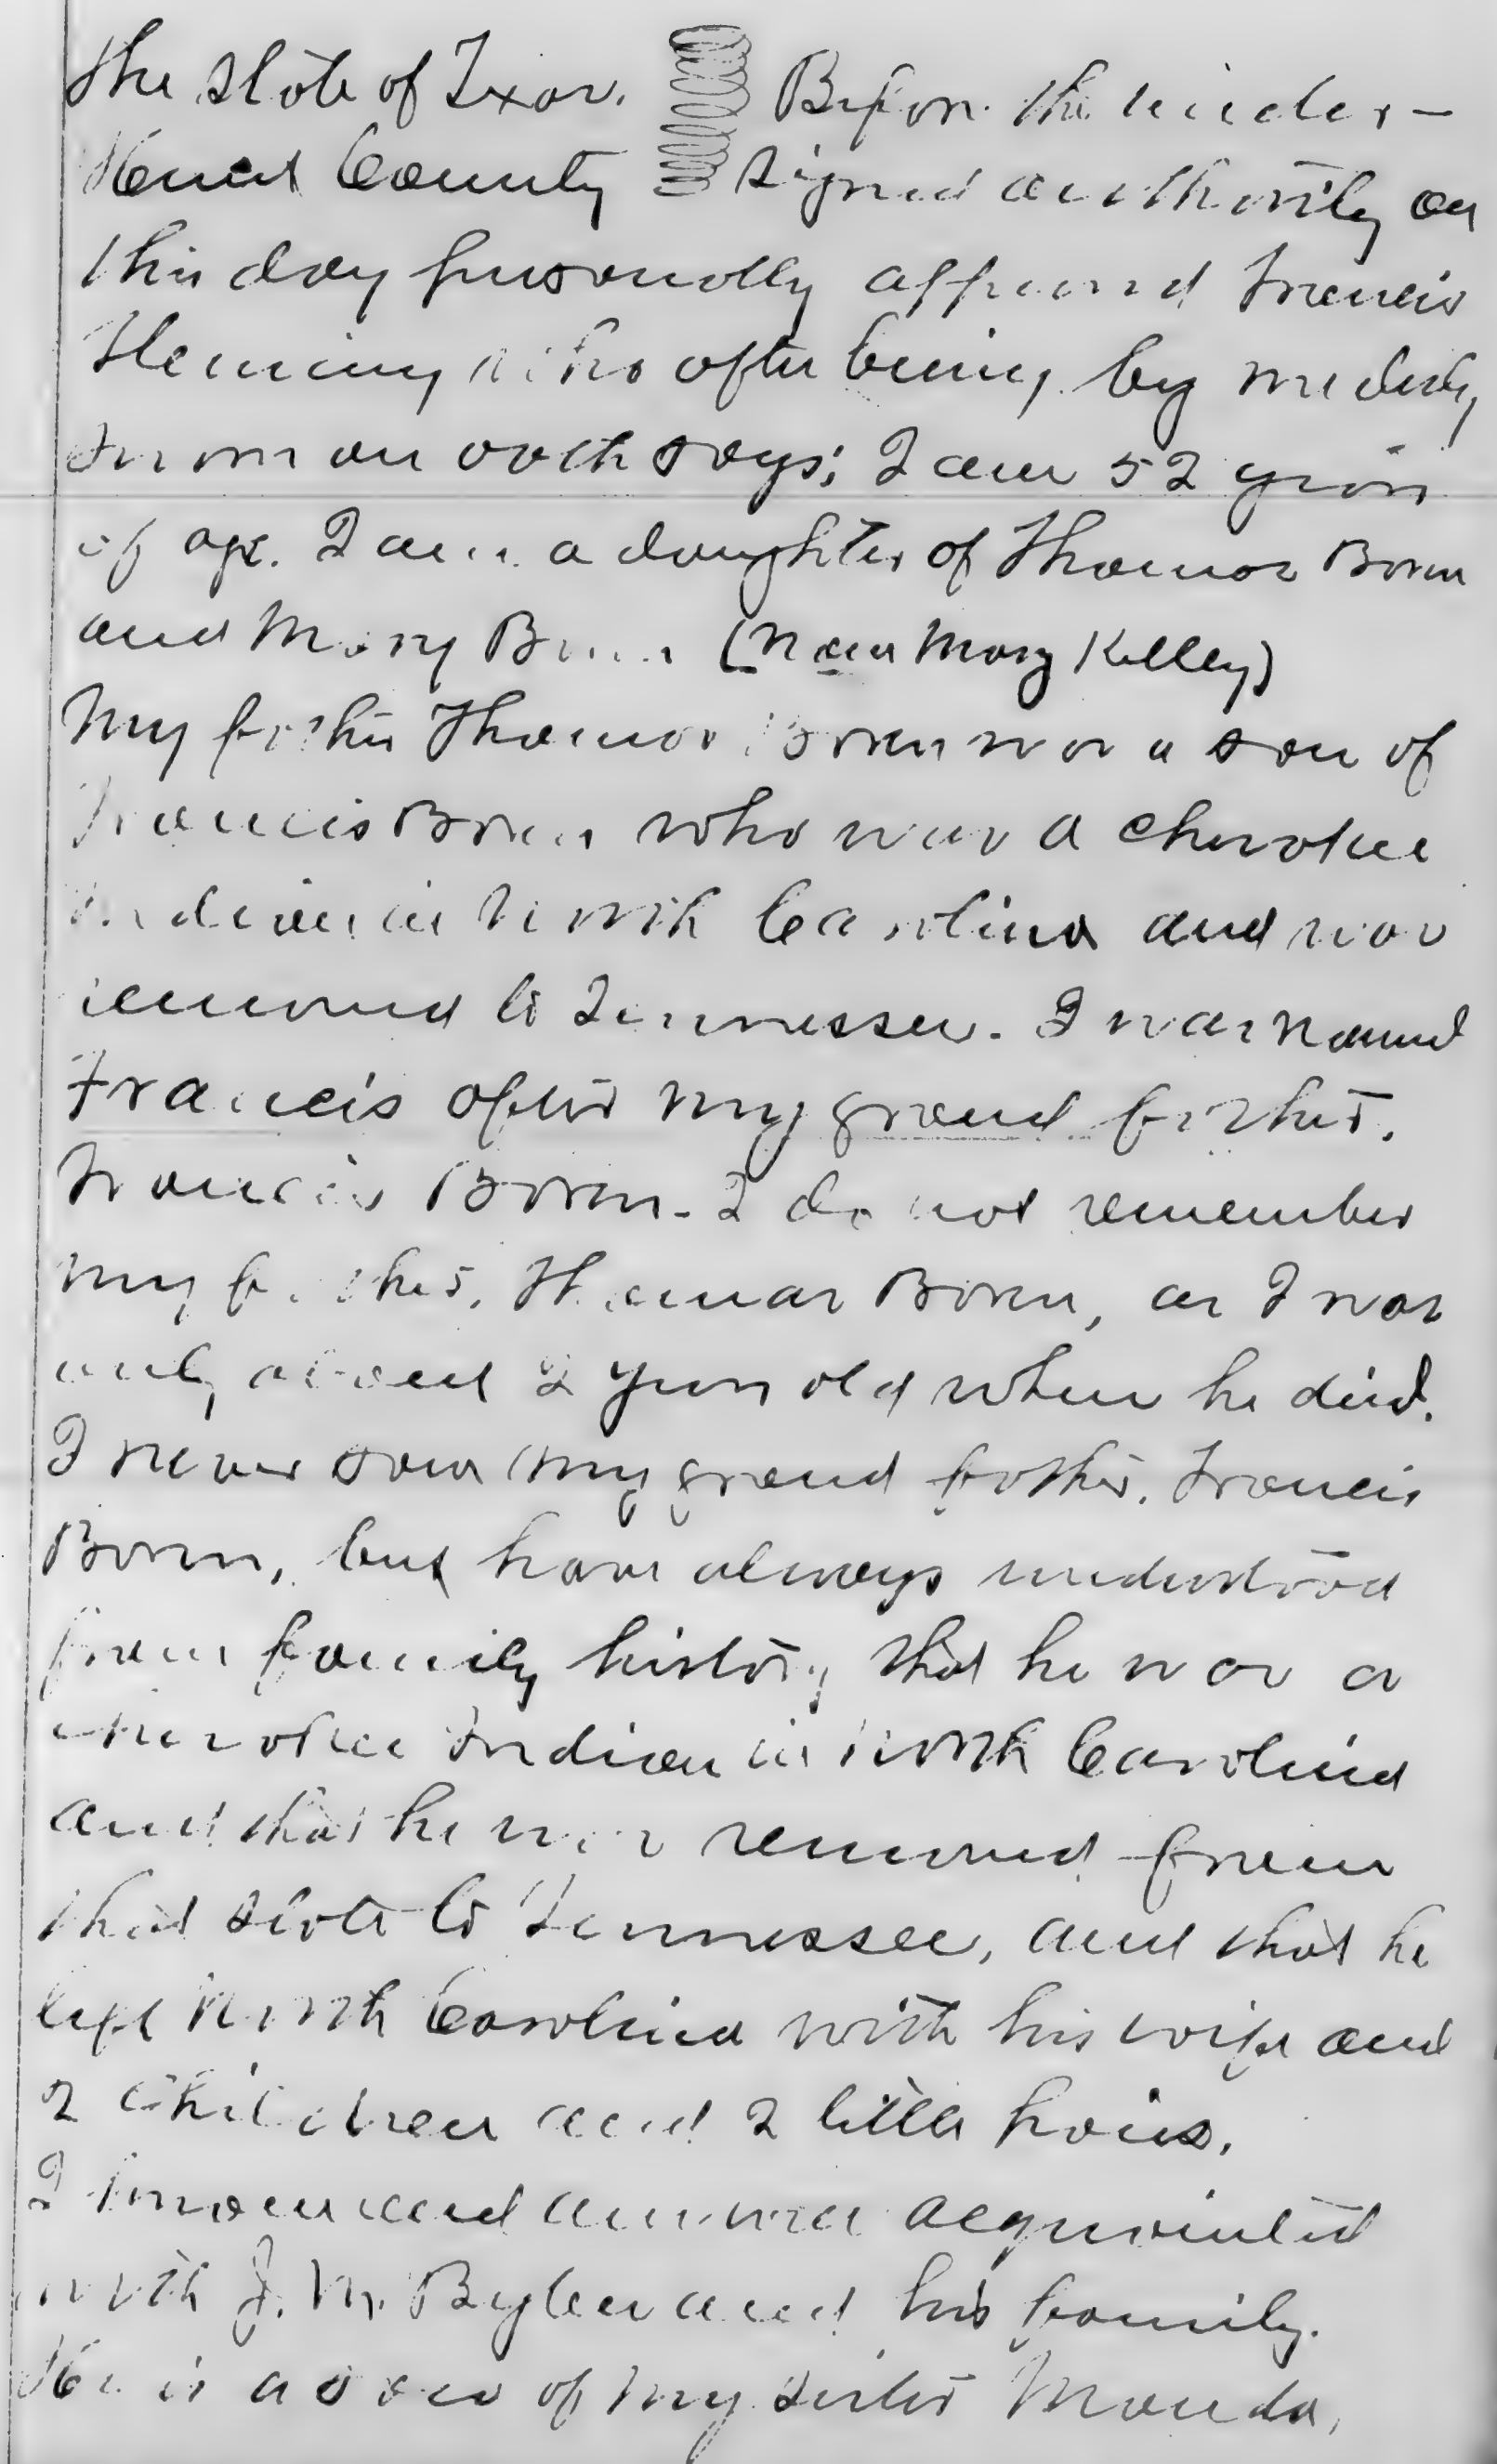 The State of Texas. Before the under-
Hunt County signed authority on
this day personally appeared Francis
who after being by me duly
sworn on oath says; I am 52 years
of age. I am a daughter of Thomas Boren
and Mary Boren (Nee Mary Kelley)
My father Thomas Boren was a son of
Francis Boren who was a cherokee
Indian in North Carolina and was
removed to Tennessee. I was named
Francis after my grand father.
Francis Boren. I do not remember
my father, Thomas Boren, as I was
only about 2 years old when he died.
I never saw my grand father, Francis
Boren, but have always understood
from family history that he was a
cherokee Indian in North Carolina
and that he was removed from
that state to Tennessee, and that he
left North Carolina with his wife and
2 children and 2 little
I know and am well acquainted
with J. M. and his family.
He is a son of my sister Manda,